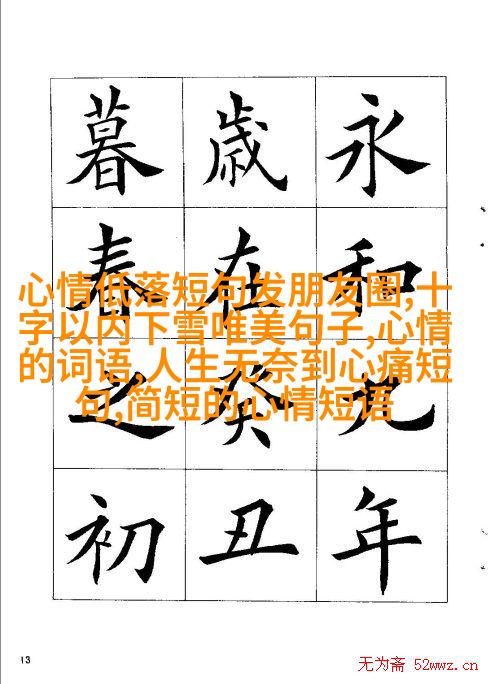 永和九年
歲在癸丑
暮春之初
心情低落短句发朋友圈,十
字以内下雪唯美句子,心情
的词语,人生无奈到心痛短
句,简短的心情短语
13
无为斋 52wwz.cn